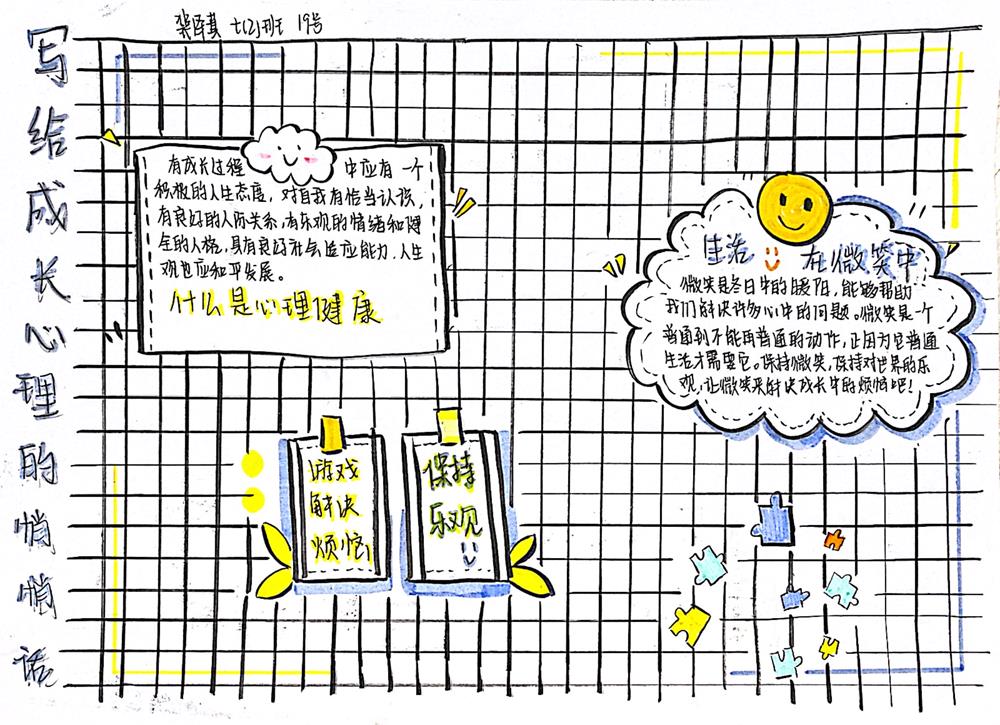 裴译其 七(2)班 19号
写给成长心理的悄悄话
有成长过程中应有一个
积极的人生态度，对自我有恰当认识，
有良好的人际关系，有乐观的情绪和健
全的人格，具有良好社会适应能力，人生
观也应和平发展。
什么是心理健康
生活在微笑中
微笑是冬日中的暖阳，能够帮助
我们解决许多心中的问题。微笑是一个
普通到不能再普通的动作，正因为它普通
生活才需要它。保持微笑，保持对世界的乐
观，让微笑来解决成长中的烦恼吧！
游戏
解决
烦恼
保持
乐观